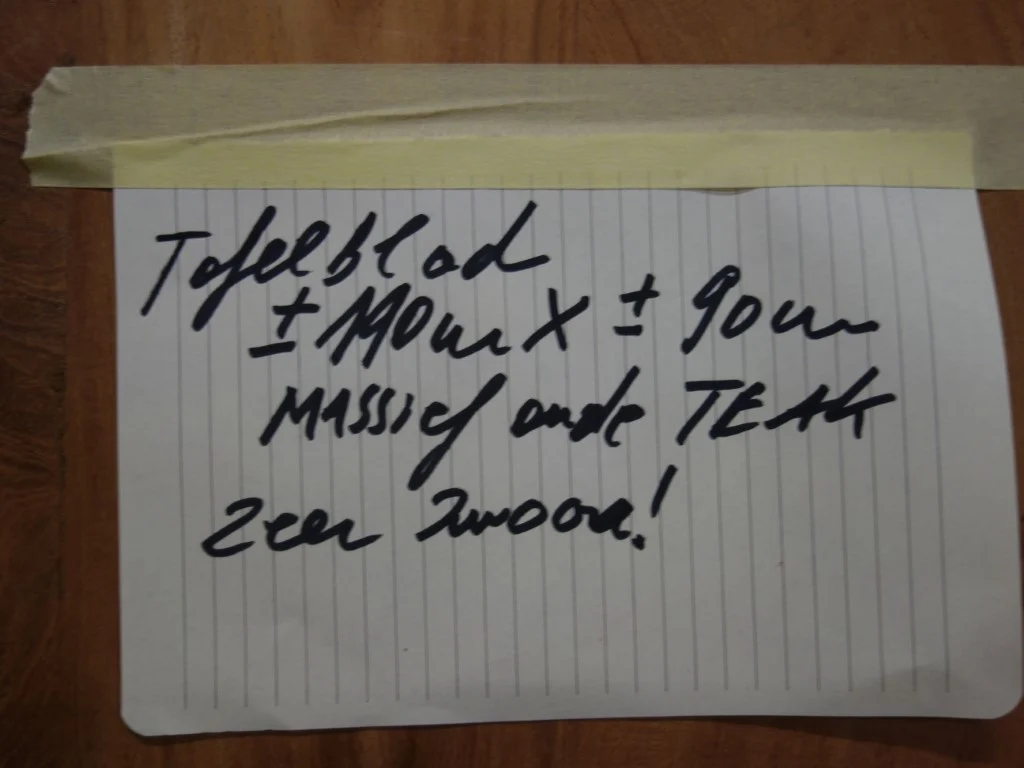 Tafelblad
± 190cm X ± 90cm
MASSief oude TEAK
Zeer zwaar!